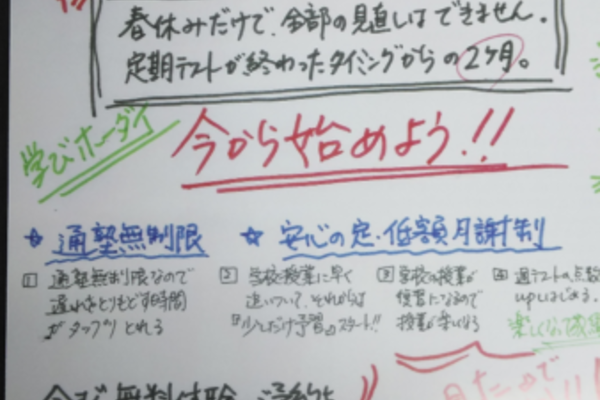 春休みだけで、全部の見直しはできません。
定期テストが終わったタイミングからの2ヶ月。
学びホーダイ
今から始めよう!!
☆ 通塾無制限 ☆ 安心の定・低額月謝制
1 通塾無制限なので
遅れをとりもどす時間
がタップリとれる
2 学校授業に早く
追いついて、それからは
『少しだけ予習』スタート!!
3 学校の授業が
復習になるので
授業が楽しくなる
4 週テストの点数
upしはじめる。
楽しくなって成果